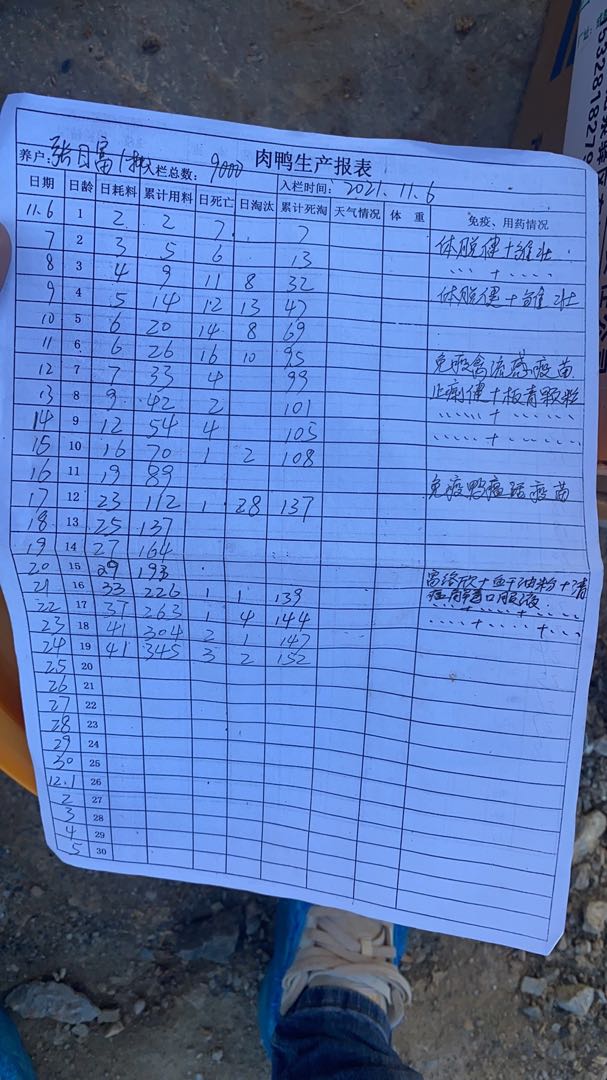 肉鸭生产报表
养户: 张日富 入栏总数: 9000 入栏时间: 2021.11.6
日期 日龄 日耗料 累计用料 日死亡 日淘汰 累计死淘 天气情况 体 重 免疫、用药情况
11.6 1 2 2 7 7 体脱健+雏壮
7 2 3 5 6 13 〃〃+〃〃
8 3 4 9 11 8 32 体脱健+雏壮
9 4 5 14 12 13 47
10 5 6 20 14 8 69
11 6 6 26 16 10 95 免疫禽流感疫苗
12 7 7 33 4 99 止痢健+板青颗粒
13 8 9 42 2 101 ......+......
14 9 12 54 4 105 ......+......
15 10 16 70 1 2 108
16 11 19 89 免疫鸭瘟活疫苗
17 12 23 112 1 28 137
18 13 25 137
19 14 27 164
20 15 29 193
21 16 33 226 1 1 139
22 17 37 263 1 4 144
23 18 41 304 2 1 147
24 19 41 345 3 2 152
25 20
26 21
27 22
28 23
29 24
30 25
12.1 26
2 27
3 28
4 29
5 30
1532818279